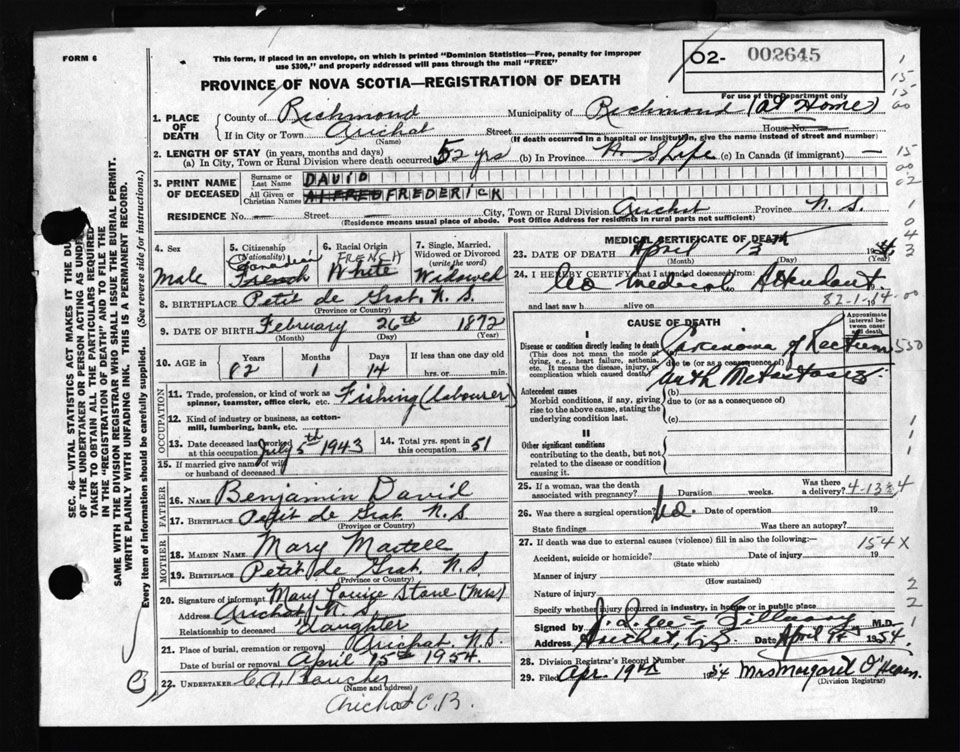 FORM 6
This form, if placed in an envelope, on which is printed "Dominion Statistics—Free, penalty for improper
use $300," and properly addressed will pass through the mail "FREE"
02- 002645
For use of the Department only
PROVINCE OF NOVA SCOTIA—REGISTRATION OF DEATH
1. PLACE OF DEATH
County of Richmond Municipality of Richmond (at Home)
If in City or Town Arichat Street House No. —
(Name) (If death occurred in a hospital or institution, give the name instead of street and number)
2. LENGTH OF STAY (in years, months and days)
(a) In City, Town or Rural Division where death occurred 52 yrs (b) In Province Life (c) In Canada (if immigrant) —
3. PRINT NAME OF DECEASED
Surname or Last Name DAVID
All Given or Christian Names ALFRED FREDERICK
RESIDENCE No. — Street — City, Town or Rural Division Arichat Province N. S.
(Residence means usual place of abode. Post Office Address for residents in rural parts not sufficient)
4. Sex Male
5. Citizenship (Nationality) Canadian French
6. Racial Origin FRENCH White
7. Single, Married, Widowed or Divorced (write the word) Widowed
8. BIRTHPLACE Petit de Grat, N. S.
(Province or Country)
9. DATE OF BIRTH February 26th 1872
(Month) (Day) (Year)
10. AGE in Years Months Days If less than one day old
82 1 14 hrs. or min.
OCCUPATION
11. Trade, profession, or kind of work as spinner, teamster, office clerk, etc. Fishing (labourer)
12. Kind of industry or business, as cotton-mill, lumbering, bank, etc.
13. Date deceased last worked at this occupation July 5th 1943 14. Total yrs. spent in this occupation 51
15. If married give name of wife or husband of deceased
FATHER
16. NAME Benjamin David
17. BIRTHPLACE Petit de Grat, N. S
(Province or Country)
MOTHER
18. MAIDEN NAME Mary Martell
19. BIRTHPLACE Petit de Grat, N. S
(Province or Country)
20. Signature of informant Mary Louise Stone (Mrs)
Address Arichat, N. S.
Relationship to deceased daughter
21. Place of burial, cremation or removal Arichat, N. S.
Date of burial or removal April 15th 1954.
22. UNDERTAKER
(Name and address)
Arichat C.B.
MEDICAL CERTIFICATE OF DEATH
23. DATE OF DEATH April 13
(Month) (Day) (Year)
24. I HEREBY CERTIFY that I attended deceased from:
No medical Attendant.
and last saw h alive on 82-1-14
CAUSE OF DEATH
Approximate interval between onset and death
I
Disease or condition directly leading to death
(This does not mean the mode of dying, e.g., heart failure, asthenia, etc. It means the disease, injury, or complication which caused death.)
(a) Carcinoma of Rectum
due to (or as a consequence of)
with Metastases.
Antecedent causes
Morbid conditions, if any, giving rise to the above cause, stating the underlying condition last.
(b)
due to (or as a consequence of)
(c)
II
Other significant conditions
contributing to the death, but not related to the disease or condition causing it.
25. If a woman, was the death associated with pregnancy? Duration weeks. Was there a delivery?
26. Was there a surgical operation? No. Date of operation 19
State findings Was there an autopsy?
27. If death was due to external causes (violence) fill in also the following:— 154 X
Accident, suicide or homicide? Date of injury 19
(State which)
Manner of injury
(How sustained)
Nature of injury
Specify whether injury occurred in industry, in home, or in public place
Signed by M.D.
Address Arichat Date April 1954
28. Division Registrar's Record Number
29. Filed Apr. 19th 1954 Mrs Margaret O'Hearn.
(Division Registrar)
SEC. 46—VITAL STATISTICS ACT MAKES IT THE DUTY
OF THE UNDERTAKER OR PERSON ACTING AS UNDERTAKER TO OBTAIN ALL THE PARTICULARS REQUIRED
IN THE "REGISTRATION OF DEATH" AND TO FILE THE
SAME WITH THE DIVISION REGISTRAR WHO SHALL ISSUE THE BURIAL PERMIT.
WRITE PLAINLY WITH UNFADING INK. THIS IS A PERMANENT RECORD.
Every item of information should be carefully supplied. (See reverse side for instructions.)